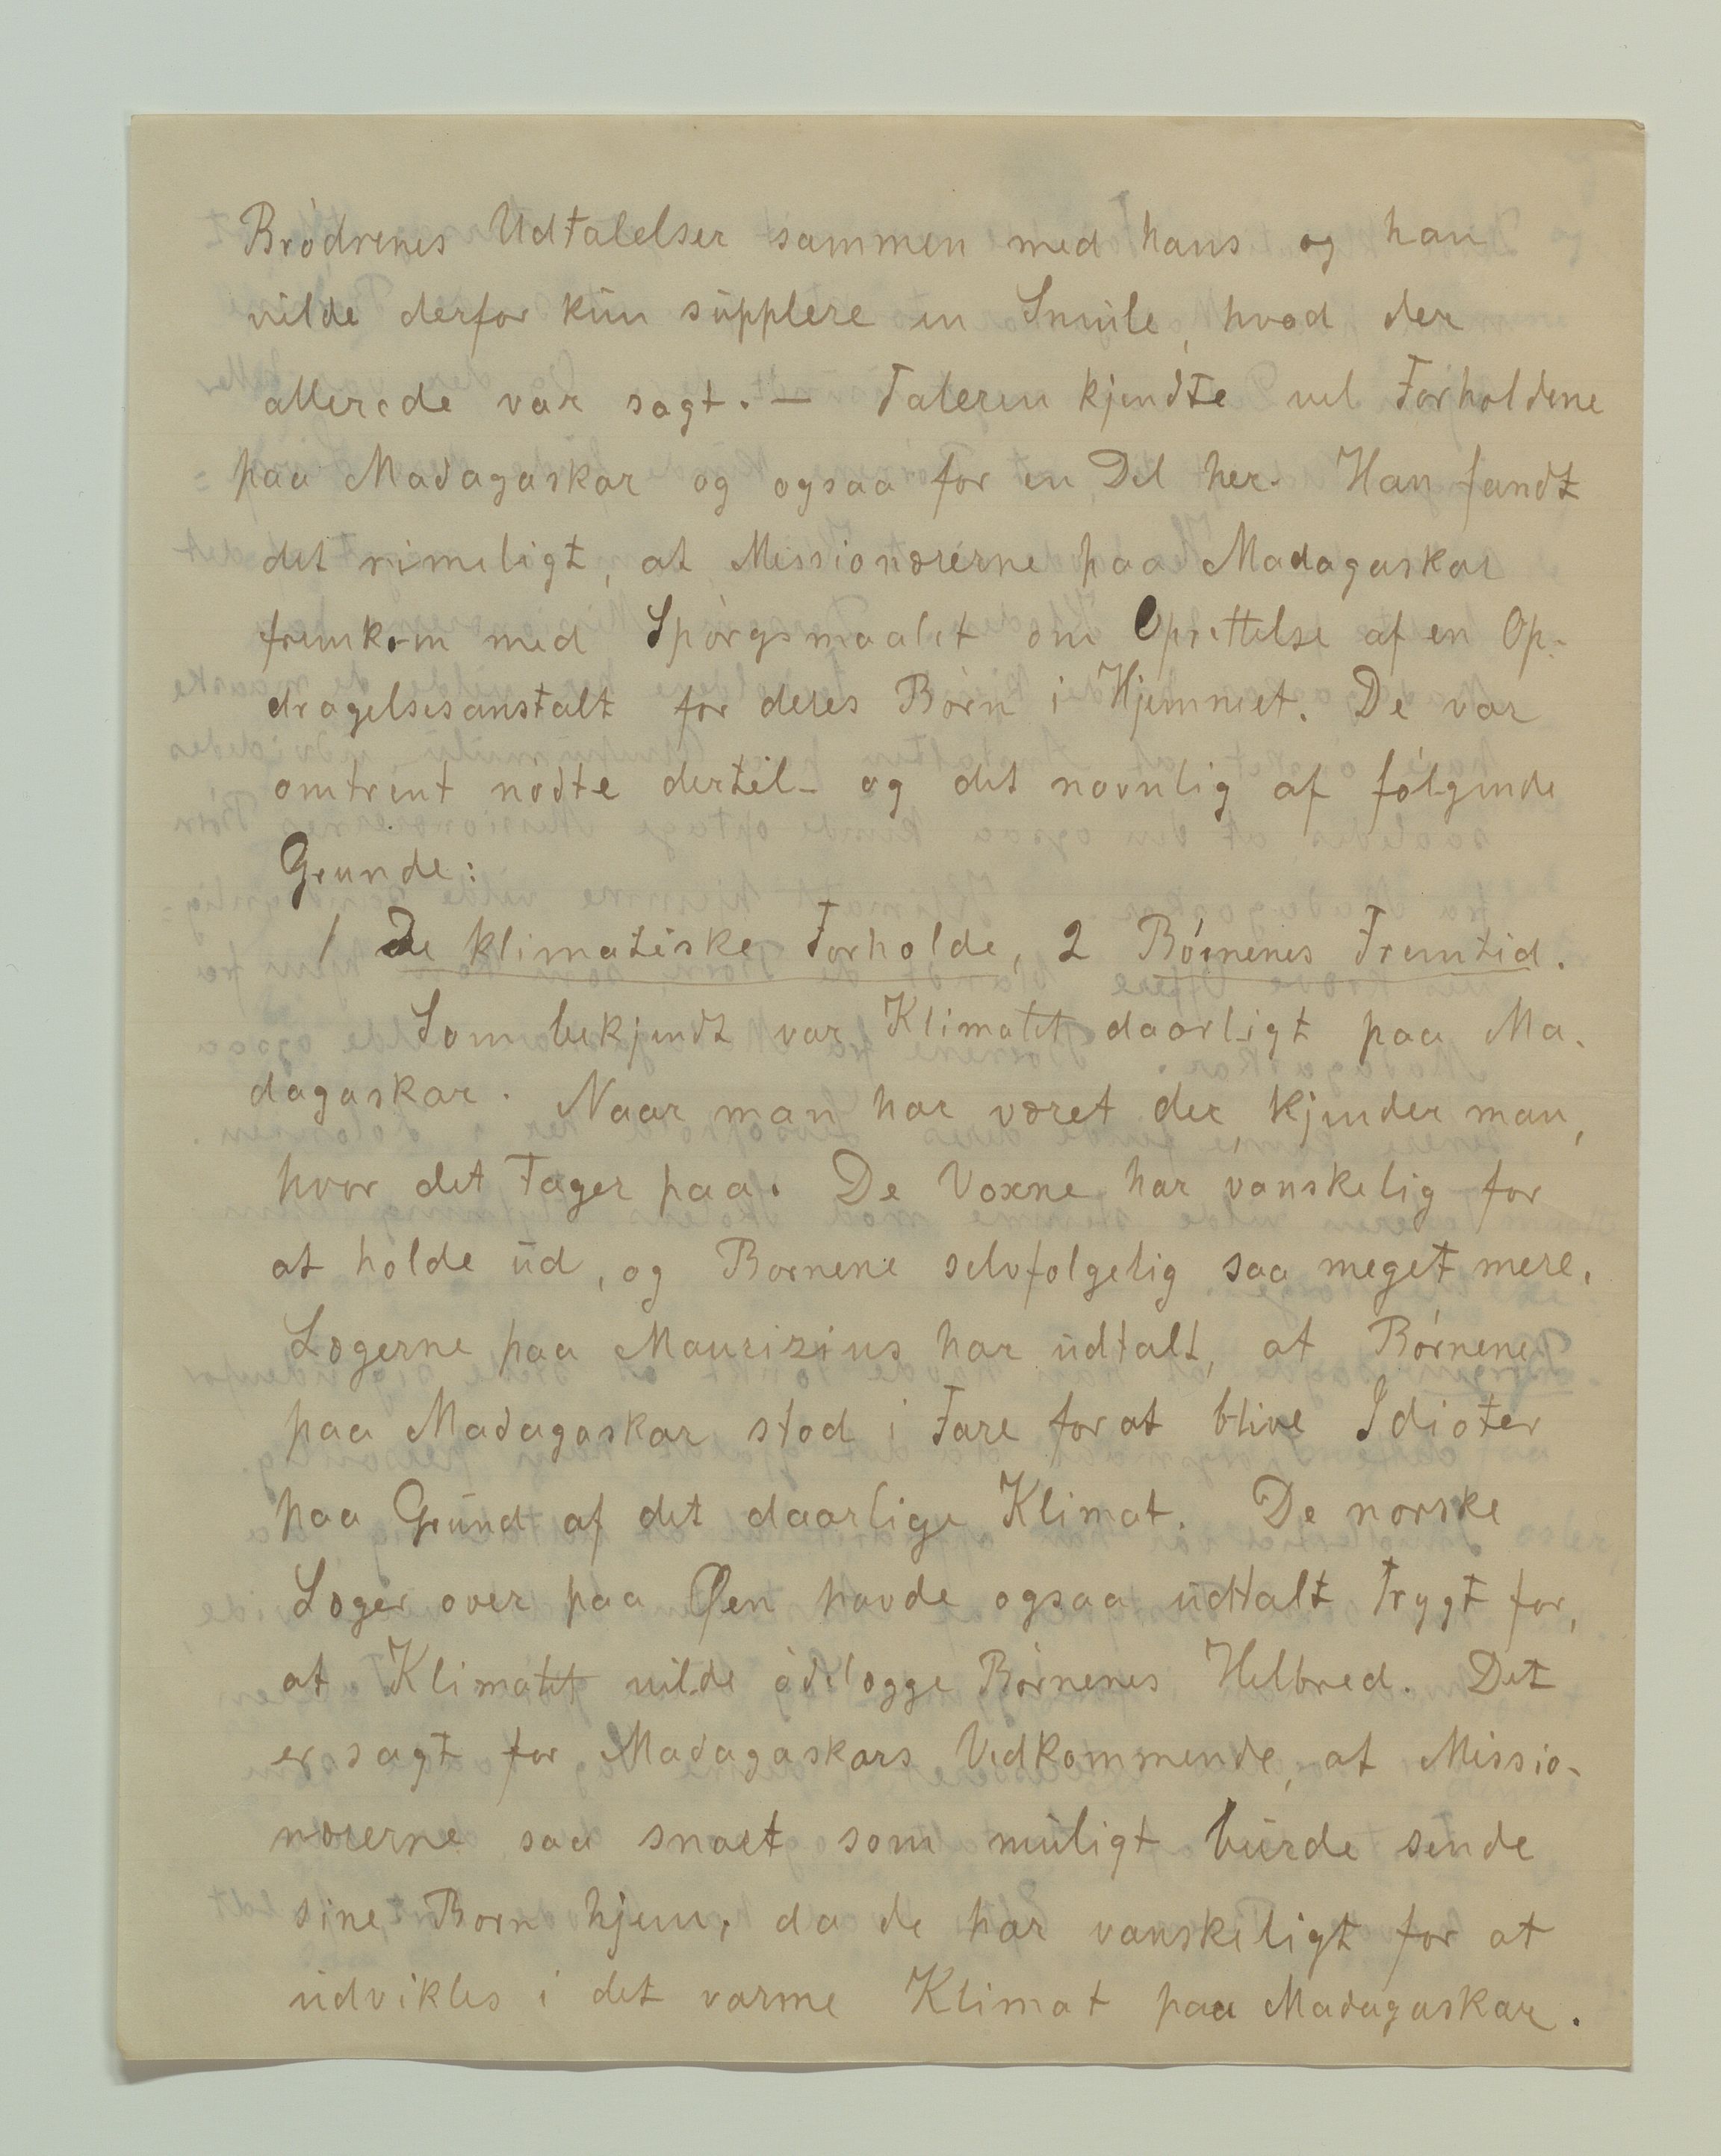 Brödrenes Udtalelser sammen med hans og han
vilde derfor kun supplere en Smule, hvad der
allerede var sagt. — Taleren kjendte vel Forholdene
paa Madagaskar og ogsaa for en Del her. Han fandt
det rimeligt, at Missionærerne paa Madagaskar
fremkom med Spörgsmaalet om Oprettelse af en Op-
dragelsesanstalt for deres Börn i Hjemmet. De var
omtrent nödte dertil - og det navnlig af fölgende
Grunde:
1 De klimatiske Forholde, 2 Börnenes Fremtid.
Som bekjendt var Klimatet daarligt paa Ma-
dagaskar. Naar man har været der, kjender man,
hvor det tager paa. De Voxne har vanskelig for
at holde ud, og Bornene selvfolgelig saa meget mere.
Lægerne paa Maurizius har udtalt, at Börnene
paa Madagaskar stod i Fare for at blive Idioter
paa Grund af det daarlige Klimat. De norske
Læger over paa Øen havde ogsaa udtalt Frygt for,
at Klimatet vilde ödelægge Börnenes Helbred. Det
er sagt for Madagaskars Vedkommende, at Missio-
nærerne saa snart som muligt burde sende
sine Born hjem, da de har vanskeligt for at
udvikles i det varme Klimat paa Madagaskar.